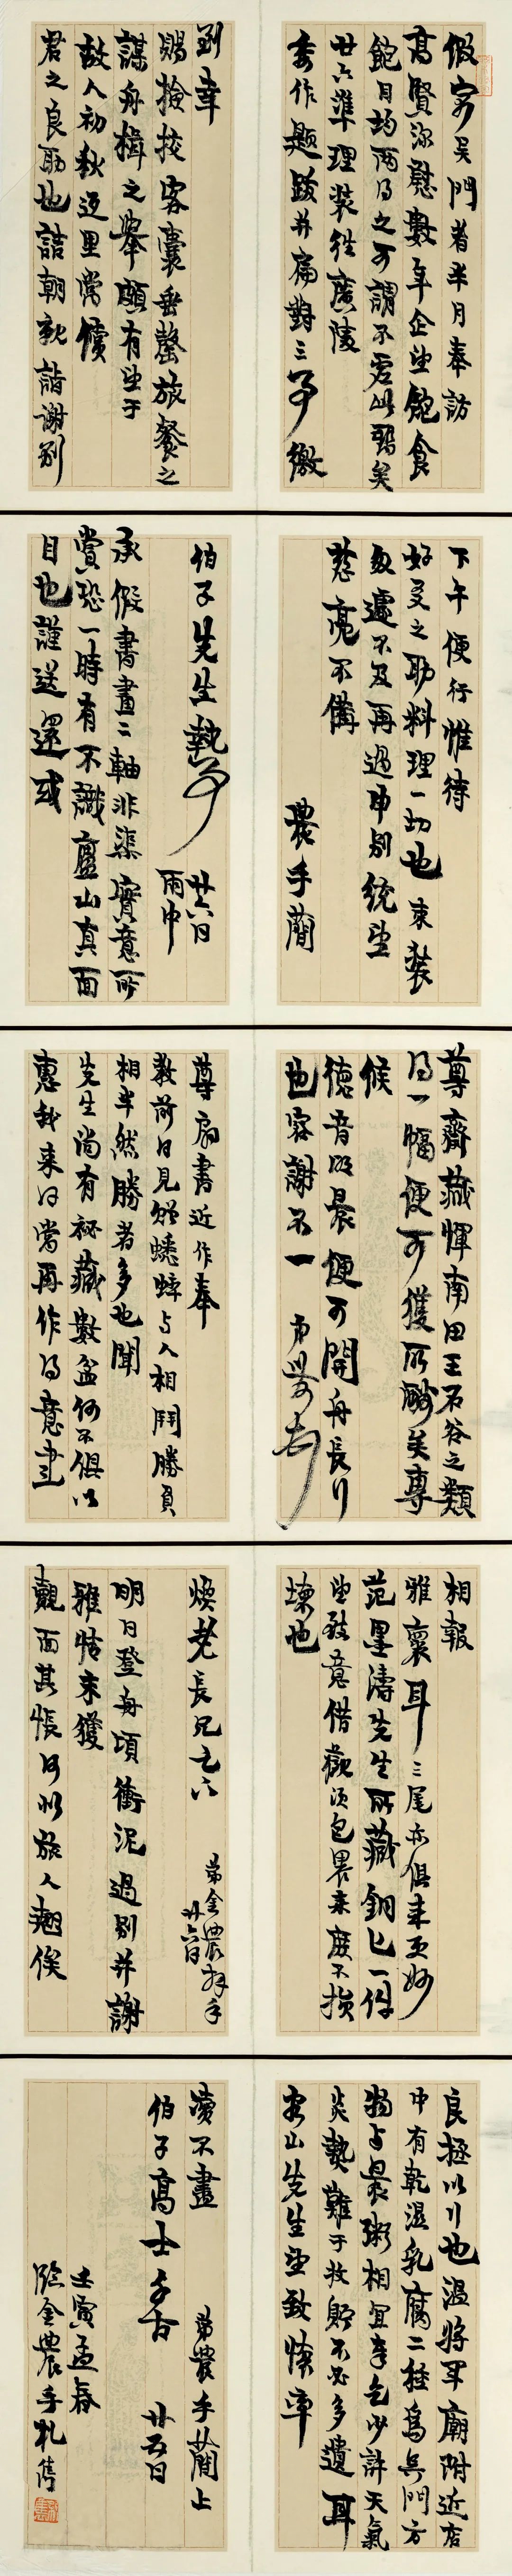 假寓吴門者半月奉訪
高賢深慰數年企望飽食
飽目均兩得之可謂不虚此聚矣
廿六準理装往廣陵
委作題跋并扁對三事繳
到幸
賜撿授客囊垂罄旅餐之
謀舟楫之舉頗有望于
故人初秋返里當償
君之良助也詰朝就詣謝别
下午便行惟待
好友之助料理一切也束装
匆遽不及再過申别統望
慈亮不備
農手蕳
伯子先生執事
廿六日
雨中
承假書畫二軸非渠實意所
賞恐一時有不識廬山真面
目也謹送還或
尊齋藏惲南田王石谷之類
得一幅便可獲所酬矣專
候
德音明晨便可開舟長行
也容謝不一
尊扇書近作奉
教前日見貽蟋蟀与人相鬥勝負
相半然勝者多也聞
先生尚有秘藏數盆何不俱以
惠我来日當再作得意畫
相報
雅褱耳三尾亦俱来更妙
范墨濤先生所藏銅匕一件
望致意借觀須包裹来庶不損
壊也
煥老長兄足下
弟金農拜手
廿六日
明日登舟頃衝泥過别并謝
雅情未獲
覿面甚悵何似旅人翹俟
良極以行也温将軍廟附近店
中有乾湿乳腐二種爲吴門方
物与晨粥相宜幸乞少許天氣
炎熱難于收貯不必多遺耳
客山先生望致懷率
瀆不盡
弟農手蕳上
伯子高士千古
廿五日
壬寅孟春
臨金農手札